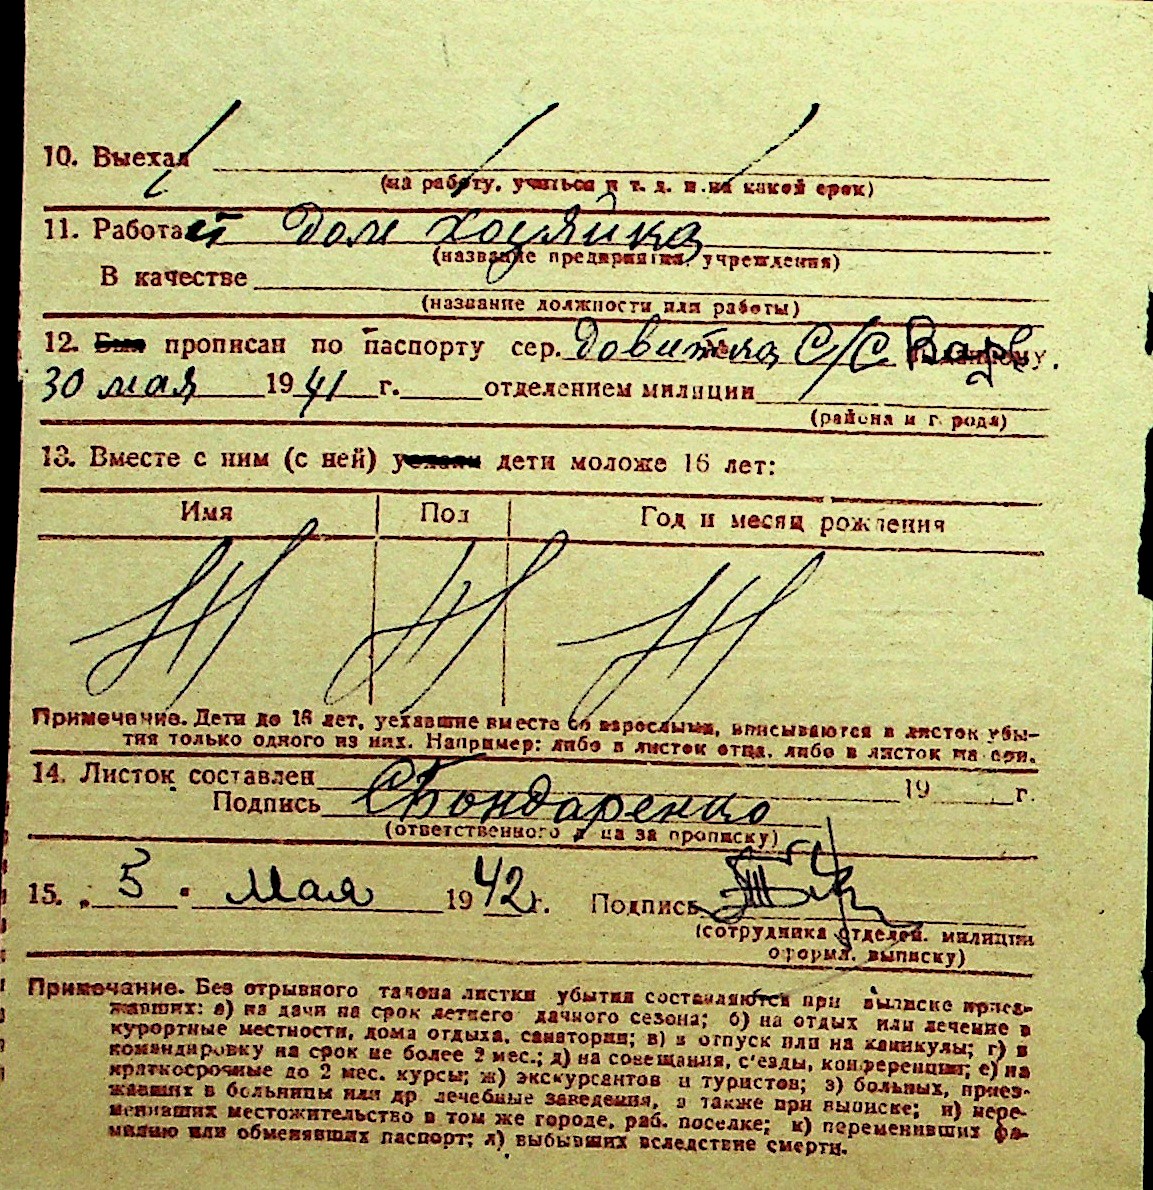 10. Выехал
(на работу, учиться и т. д. и на какой срок)
11. Работает Дом хозяйка
(название предприятия, учреждения)
В качестве
(название должности или работы)
12. Был прописан по паспорту сер. С/С
30 мая 1941 г. отделением милиции
(района и города)
13. Вместе с ним (с ней) уехали дети моложе 16 лет:
Имя Пол Год и месяц рождения
Примечание. Дети до 16 лет, уехавшие вместе со взрослыми, вписываются в листок убы-
тия только одного из них. Например: либо в листок отца, либо в листок матери.
14. Листок составлен 19 г.
Подпись СБондаренко
(ответственного лица за прописку)
15. „5" Мая 1942 г. Подпись
(сотрудника отделен. милиции
оформл. выписку)
Примечание. Без отрывного талона листки убытия составляются при выписке приез-
жавших: а) на дачи на срок летнего дачного сезона; б) на отдых или лечение в
курортные местности, дома отдыха, санатории; в) в отпуск или на каникулы; г) в
командировку на срок не более 2 мес.; д) на совещания, с'езды, конференции; е) на
краткосрочные до 2 мес. курсы; ж) экскурсантов и туристов; з) больных, приез-
жавших в больницы или др. лечебные заведения, а также при выписке; и) пере-
менивших местожительство в том же городе, раб. поселке; к) переменивших фа-
милию или обменявших паспорт; л) выбывших вследствие смерти.